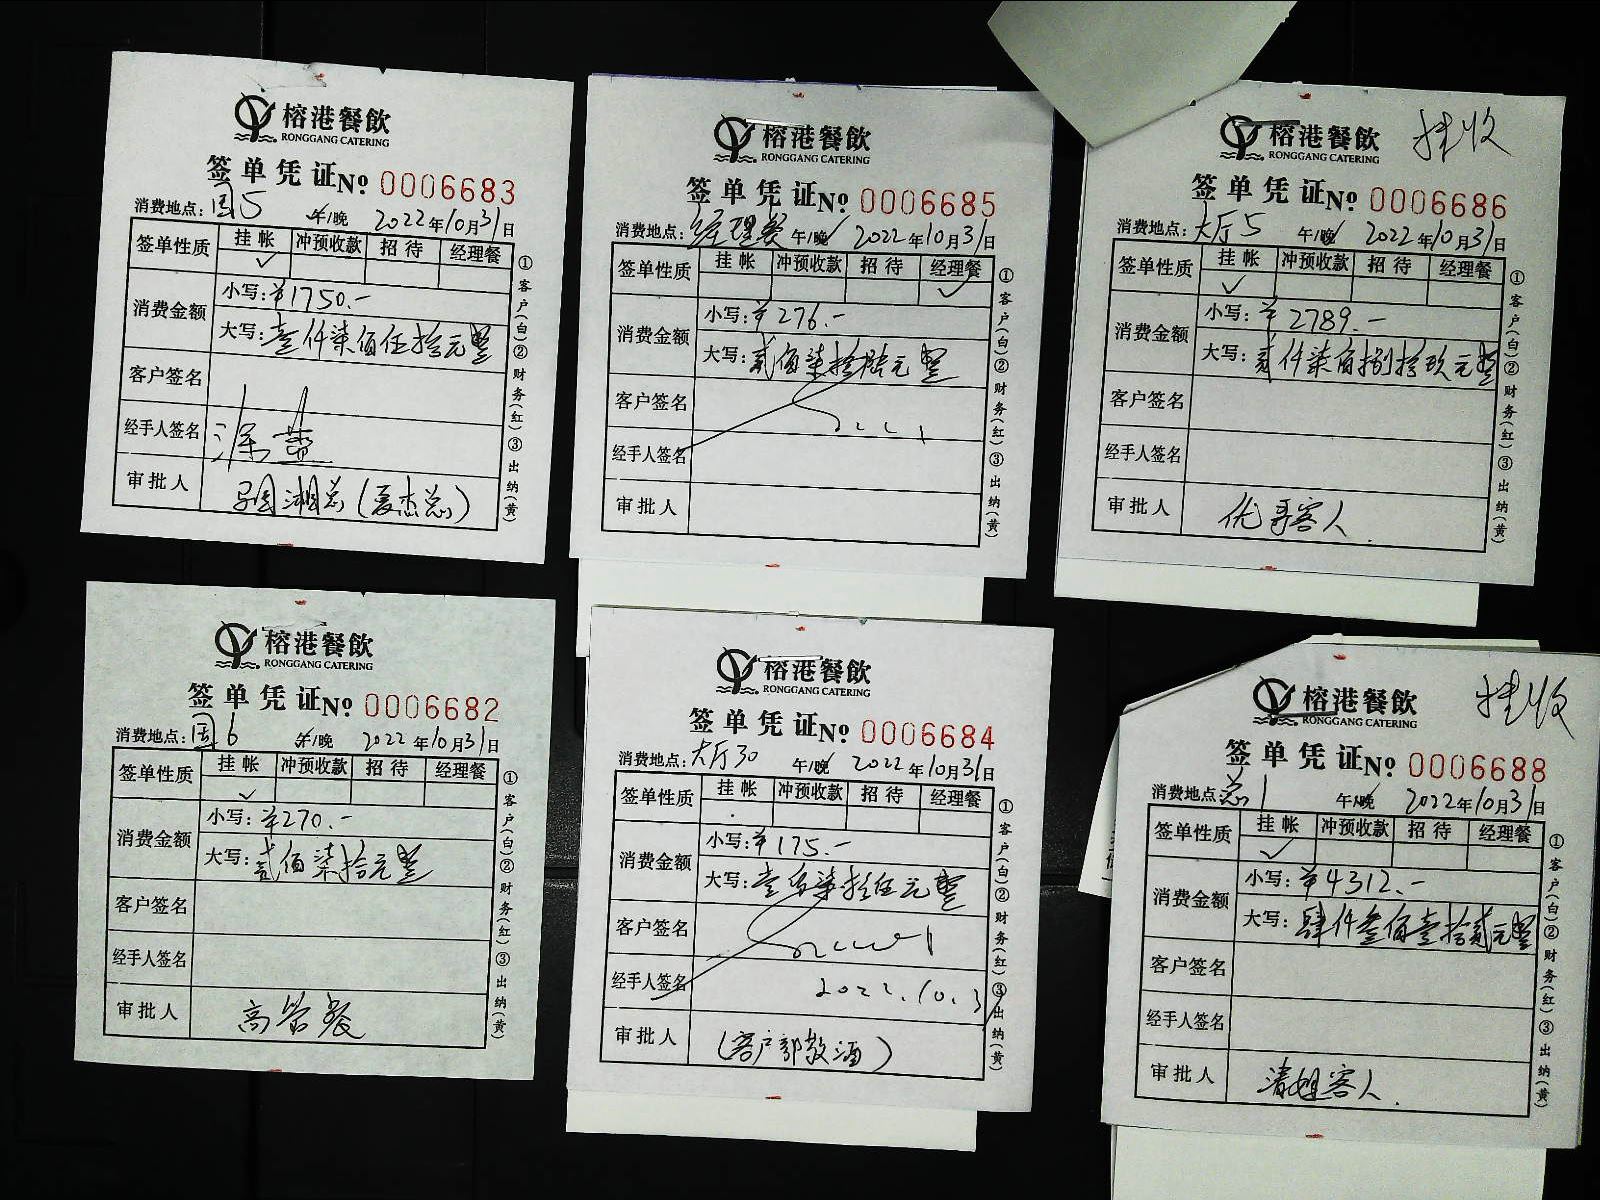 榕港餐飲
RONGGANG CATERING
签单凭证 № 0006683
消费地点：国5 午/晚 2022年10月31日
签单性质 挂帐 冲预收款 招待 经理餐
✓
消费金额 小写：¥1750.-
大写：壹仟柒佰伍拾元整
客户签名
经手人签名
审批人
①客户(白)②财务(红)③出纳(黄)
榕港餐飲
RONGGANG CATERING
签单凭证 № 0006685
消费地点：经理餐 午/晚 2022年10月31日
签单性质 挂帐 冲预收款 招待 经理餐
✓
消费金额 小写：¥276.-
大写：贰佰柒拾陆元整
客户签名
经手人签名
审批人
①客户(白)②财务(红)③出纳(黄)
挂收
榕港餐飲
RONGGANG CATERING
签单凭证 № 0006686
消费地点：大厅5 午/晚 2022年10月31日
签单性质 挂帐 冲预收款 招待 经理餐
✓
消费金额 小写：¥2789.-
大写：贰仟柒佰捌拾玖元整
客户签名
经手人签名
审批人 优哥客人
①客户(白)②财务(红)③出纳(黄)
榕港餐飲
RONGGANG CATERING
签单凭证 № 0006682
消费地点：国6 午/晚 2022年10月31日
签单性质 挂帐 冲预收款 招待 经理餐
✓
消费金额 小写：¥270.-
大写：贰佰柒拾元整
客户签名
经手人签名
审批人 高管餐
①客户(白)②财务(红)③出纳(黄)
榕港餐飲
RONGGANG CATERING
签单凭证 № 0006684
消费地点：大厅30 午/晚 2022年10月31日
签单性质 挂帐 冲预收款 招待 经理餐
消费金额 小写：¥175.-
大写：壹佰柒拾伍元整
客户签名
经手人签名 2022.10.31
审批人 (客户部敬酒)
①客户(白)②财务(红)③出纳(黄)
挂收
榕港餐飲
RONGGANG CATERING
签单凭证 № 0006688
消费地点：总1 午/晚 2022年10月31日
签单性质 挂帐 冲预收款 招待 经理餐
✓
消费金额 小写：¥4312.-
大写：肆仟叁佰壹拾贰元整
客户签名
经手人签名
审批人 清姐客人
①客户(白)②财务(红)③出纳(黄)